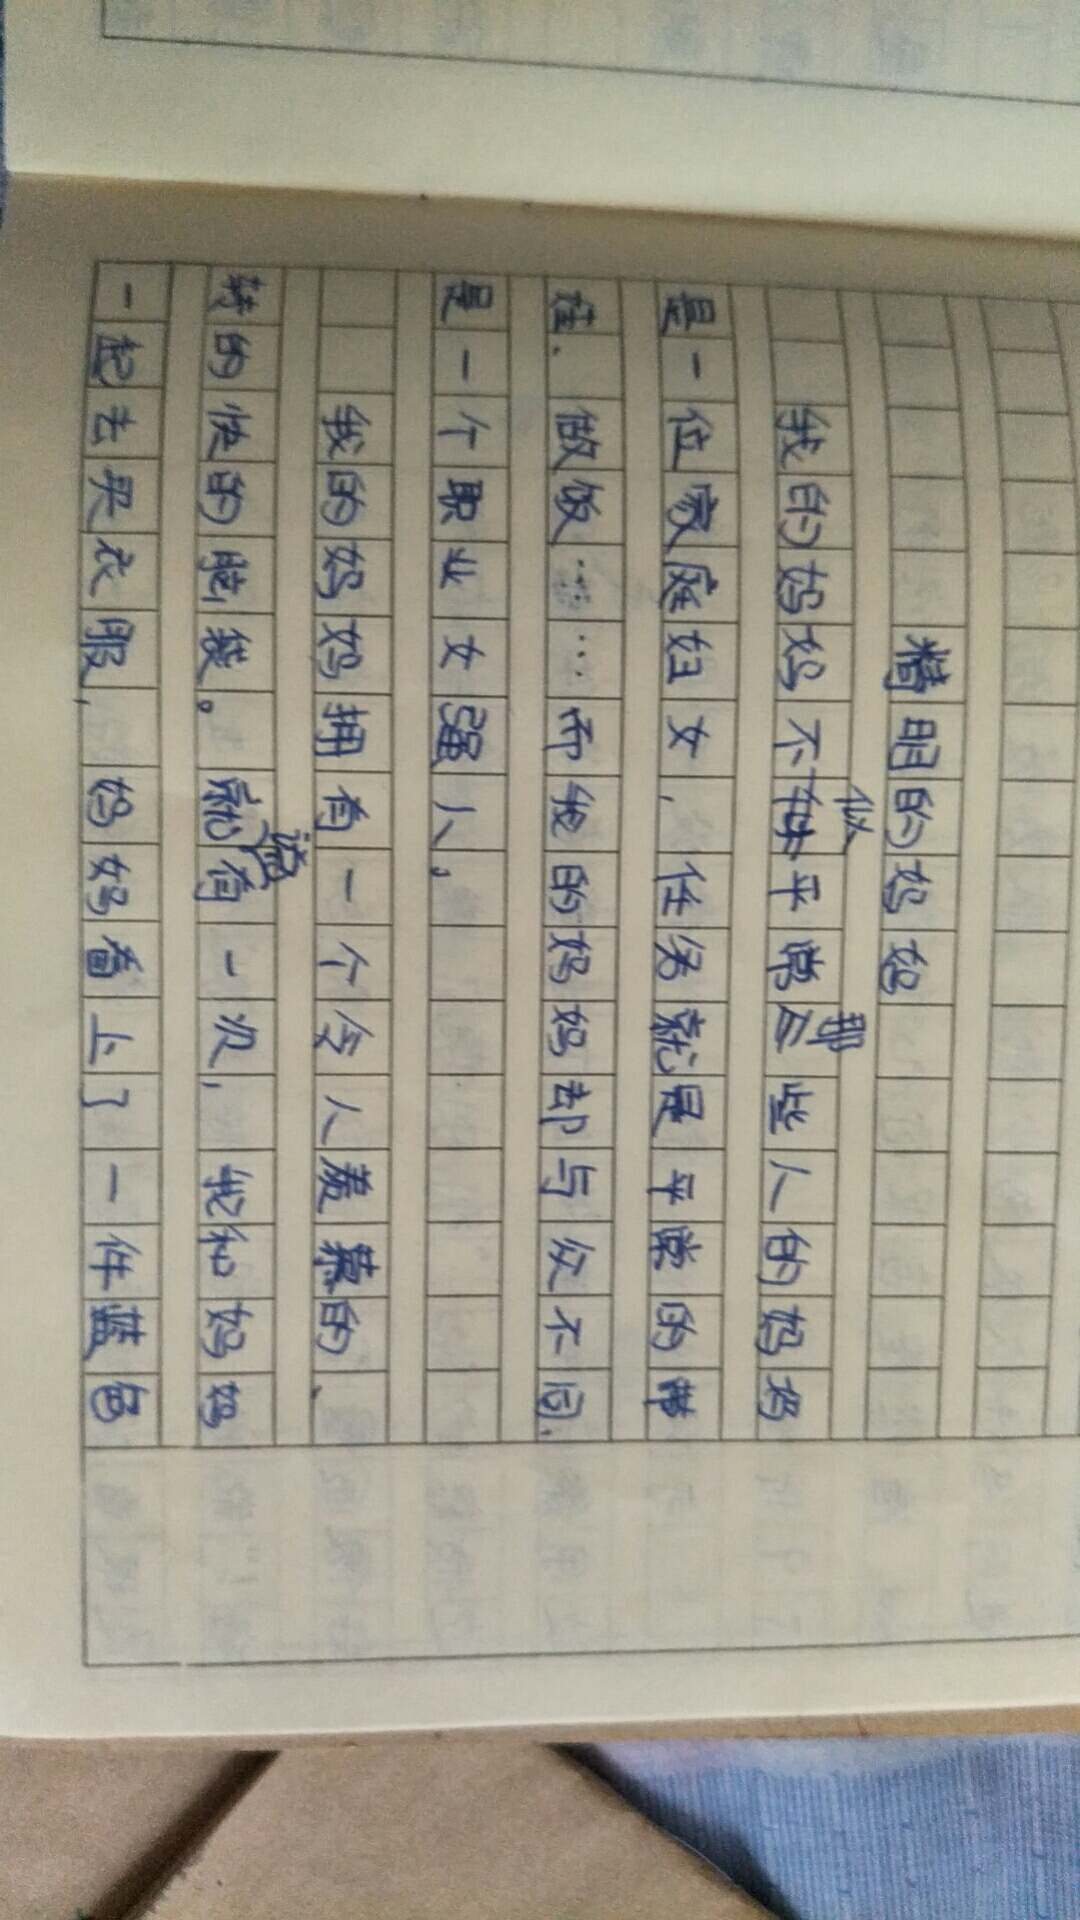 精明的妈妈
我的妈妈不似平常那些人的妈妈
是一位家庭妇女,任务就是平常的带
娃.做饭……而我的妈妈却与众不同.
是一个职业女强人。
我的妈妈拥有一个令人羡慕的、
转的快的脑袋。就有一次,我和妈妈
一起去买衣服,妈妈看上了一件蓝色